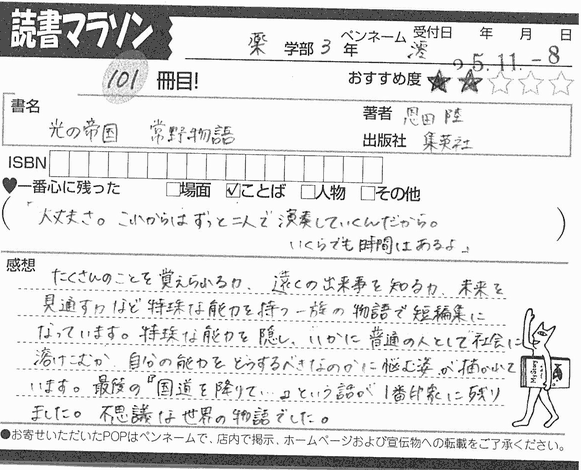 読書マラソン
薬 学部 3 年 ペンネーム 澪 受付日 年 月 日
95.11.-8
101 冊目! おすすめ度 ★★☆☆☆
書名 著者 恩田 陸
光の帝国 常野物語 出版社 集英社
ISBN
♥一番心に残った □場面 ☑ことば □人物 □その他
(「大丈夫さ。これからはずっと二人で演奏していくんだから。
いくらでも時間はあるよ」)
感想
たくさんのことを覚えられる力、遠くの出来事を知る力、未来を
見通す力など特殊な能力を持つ一族の物語で短編集に
なっています。特殊な能力を隠し、いかに普通の人として社会に
溶けこむか、自分の能力をどうするべきなのかに悩む姿が描かれて
います。最後の『国道を降りて…』という話が1番印象に残り
ました。不思議な世界の物語でした。
●お寄せいただいたPOPはペンネームで、店内で掲示、ホームページおよび宣伝物への転載をご了承ください。